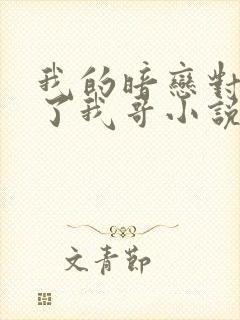 我的暗戀對
了我哥小說
文青節